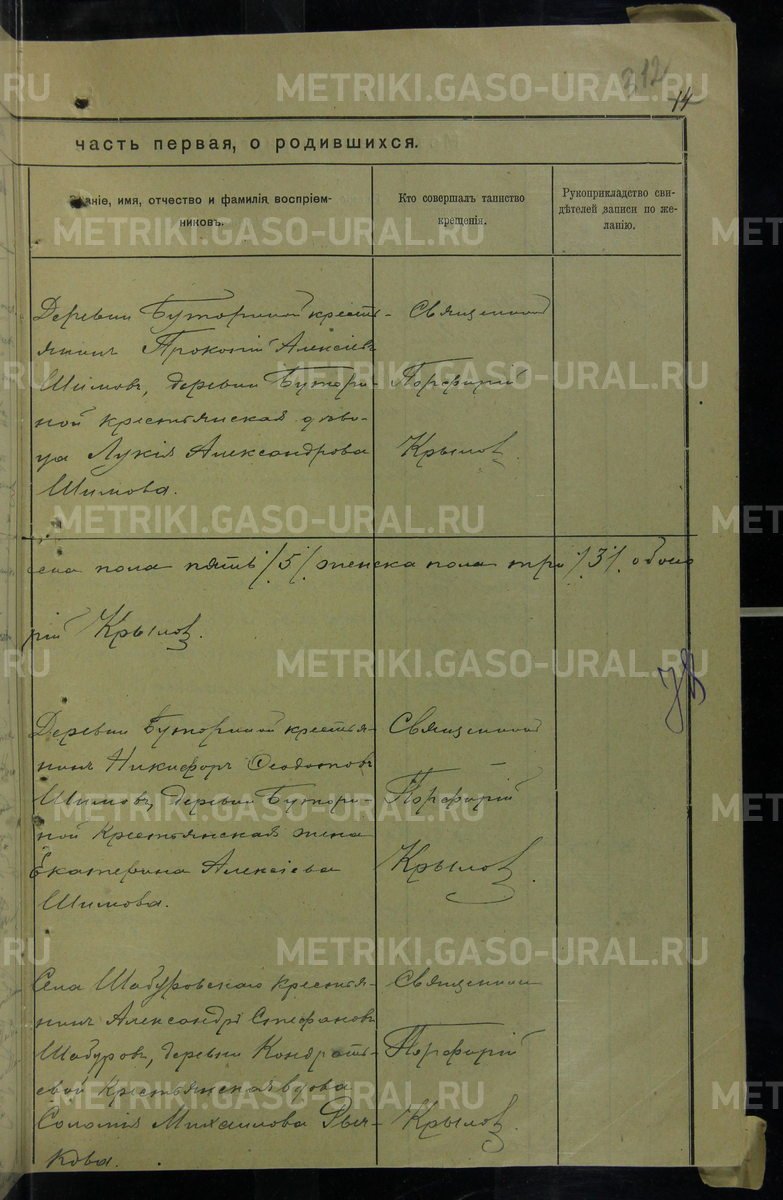 312
14
часть первая, о родившихся.
Званіе, имя, отчество и фамилія воспріем-
никовъ.
Кто совершалъ таинство
крещенія.
Рукоприкладство сви-
дѣтелей записи по же-
ланію.
Деревни Буториной кресть-
янинъ Прокопій Алексѣевъ
Шимовъ, деревни Бутори-
ной крестьянская дѣви-
ца Лукія Александрова
Шимова.
Священникъ
Порфирій
Крылов
ска пола пять /5/, женска пола три /3/. обоего
рій Крылов.
Деревни Буториной крестья-
нинъ Никифоръ Ѳеодотовъ
Шимовъ, деревни Бутори-
ной крестьянская жена
Екатерина Алексіева
Шимова.
Священникъ
Порфирій
Крылов.
Села Шабуровскаго крестья-
нинъ Александръ Стефановъ
Шабуровъ, деревни Кондрать-
евой крестьянская вдова
Соломія Михаилова Рыч-
кова.
Священникъ
Порфирій
Крылов.
METRIKI.GASO-URAL.RU